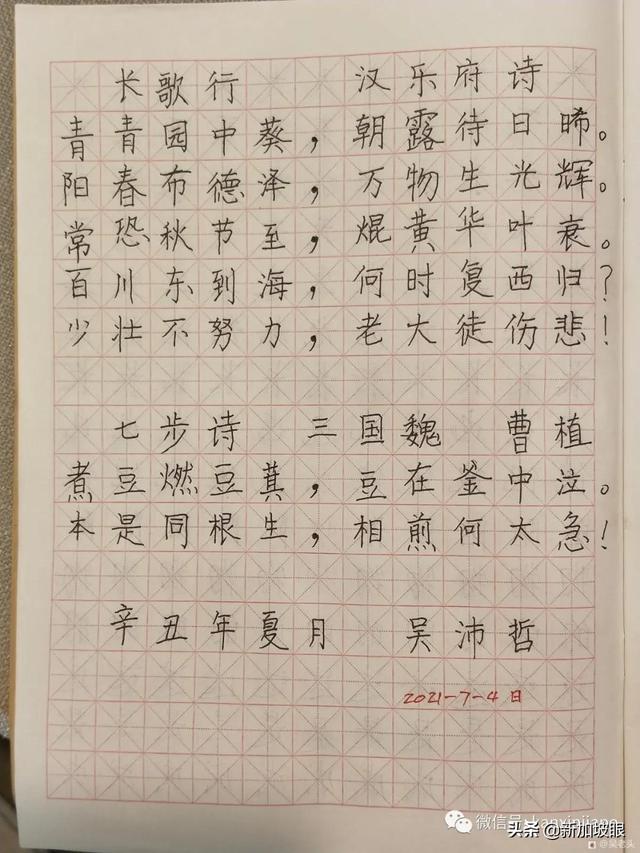 长歌行 汉乐府诗
青青园中葵，朝露待日晞。
阳春布德泽，万物生光辉。
常恐秋节至，焜黄华叶衰。
百川东到海，何时复西归？
少壮不努力，老大徒伤悲！
七步诗 三国魏 曹植
煮豆燃豆萁，豆在釜中泣。
本是同根生，相煎何太急！
辛丑年夏月 吴沛哲
2021-7-4日
微信号: kanxinjiapo
头条 @新加坡眼
@吴老头